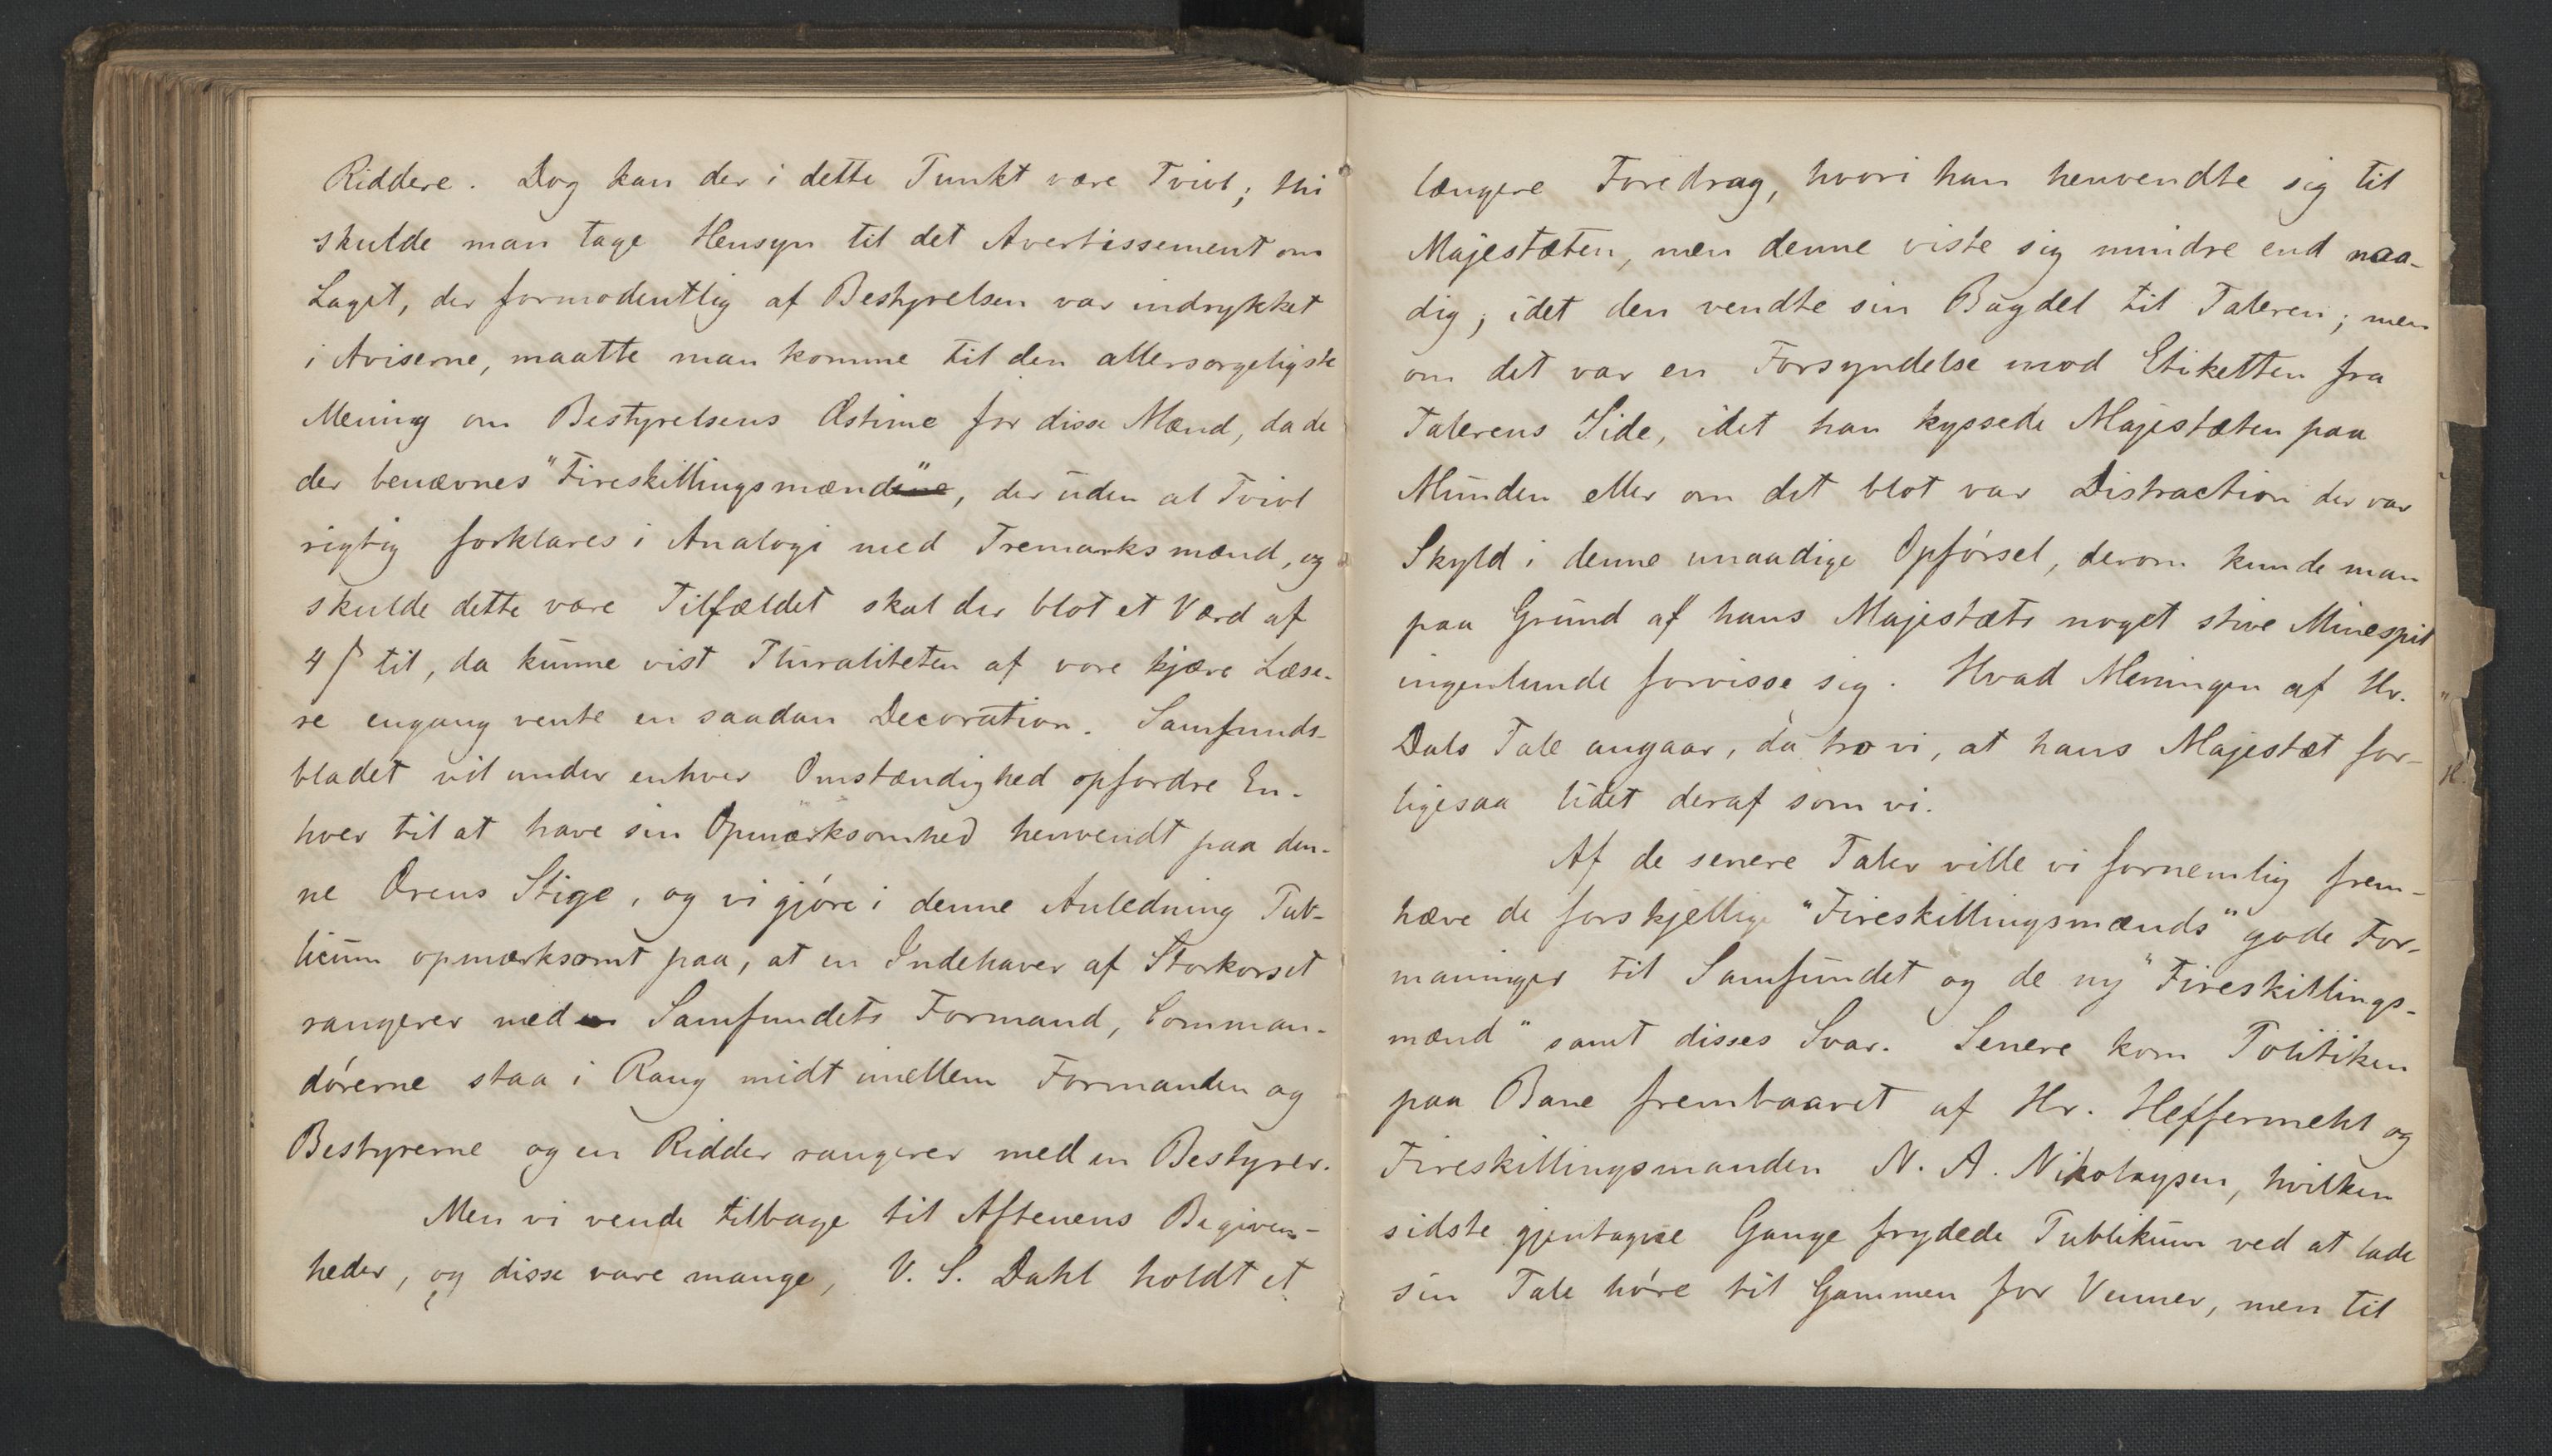 Riddere. Dog kan der i dette Punkt være Tvivl; thi
skulde man tage Hensyn til det Avertissement om
Laget, der formodentlig af Bestyrelsen var indrykket
i Aviserne, maatte man komme til den allersørgeligste
Mening om Bestyrelsens Æstime for disse Mænd, da de
der benævnes "Fireskillingsmænd", der uden al Tvivl
rigtig forklares i Analogi med Tremarksmænd, og
skulde dette være Tilfældet skal der blot et Værd af
4 ß til, da kunne vist Pluraliteten af vore kjære Læse-
re engang vente en saadan Decoration. Samfunds-
bladet vil under enhver Omstændighed opfordre En-
hver til at have sin Opmærksomhed henvendt paa den-
ne Ærens Stige, og vi gjöre i denne Anledning Pub-
licum opmærksomt paa, at en Indehaver af Storkorset
rangerer med Samfundets Formand, Comman-
dörerne staa i Rang midt imellem Formanden og
Bestyrerne og en Ridder rangerer med en Bestyrer.
Men vi vende tilbage til Aftenens Begiven-
heder, og disse vare mange, V. S. Dahl holdt et
længere Foredrag, hvori han henvendte sig til
Majestæten, men denne viste sig mindre end naa-
dig, idet den vendte sin Bagdel til Taleren; men
om det var en Forsyndelse mod Etiketten fra
Talerens Side, idet han kyssede Majestæten paa
Munden eller om det blot var Distraction der var
Skyld i denne unaadige Opförsel, derom kunde man
paa Grund af hans Majestæts noget stive Minespil
ingenlunde forvisse sig. Hvad Meningen af Hr.
Dals Tale angaar, da tro vi, at hans Majestæt for-
ligesaa lidet deraf som vi.
Af de senere Taler ville vi fornemlig frem-
hæve de forskjellige "Fireskillingsmænds" gode For-
maninger til Samfundet og de ny "Fireskillings-
mænd" samt disses Svar. Senere kom Politiken
paa Bane frembaaret af Hr. Heffermehl og
Fireskillingsmanden N. A. Nikolaysen, hvilken
sidste gjentagne Gange frydede Publikum ved at lade
sin Tale höre til Gammen for Venner, men til